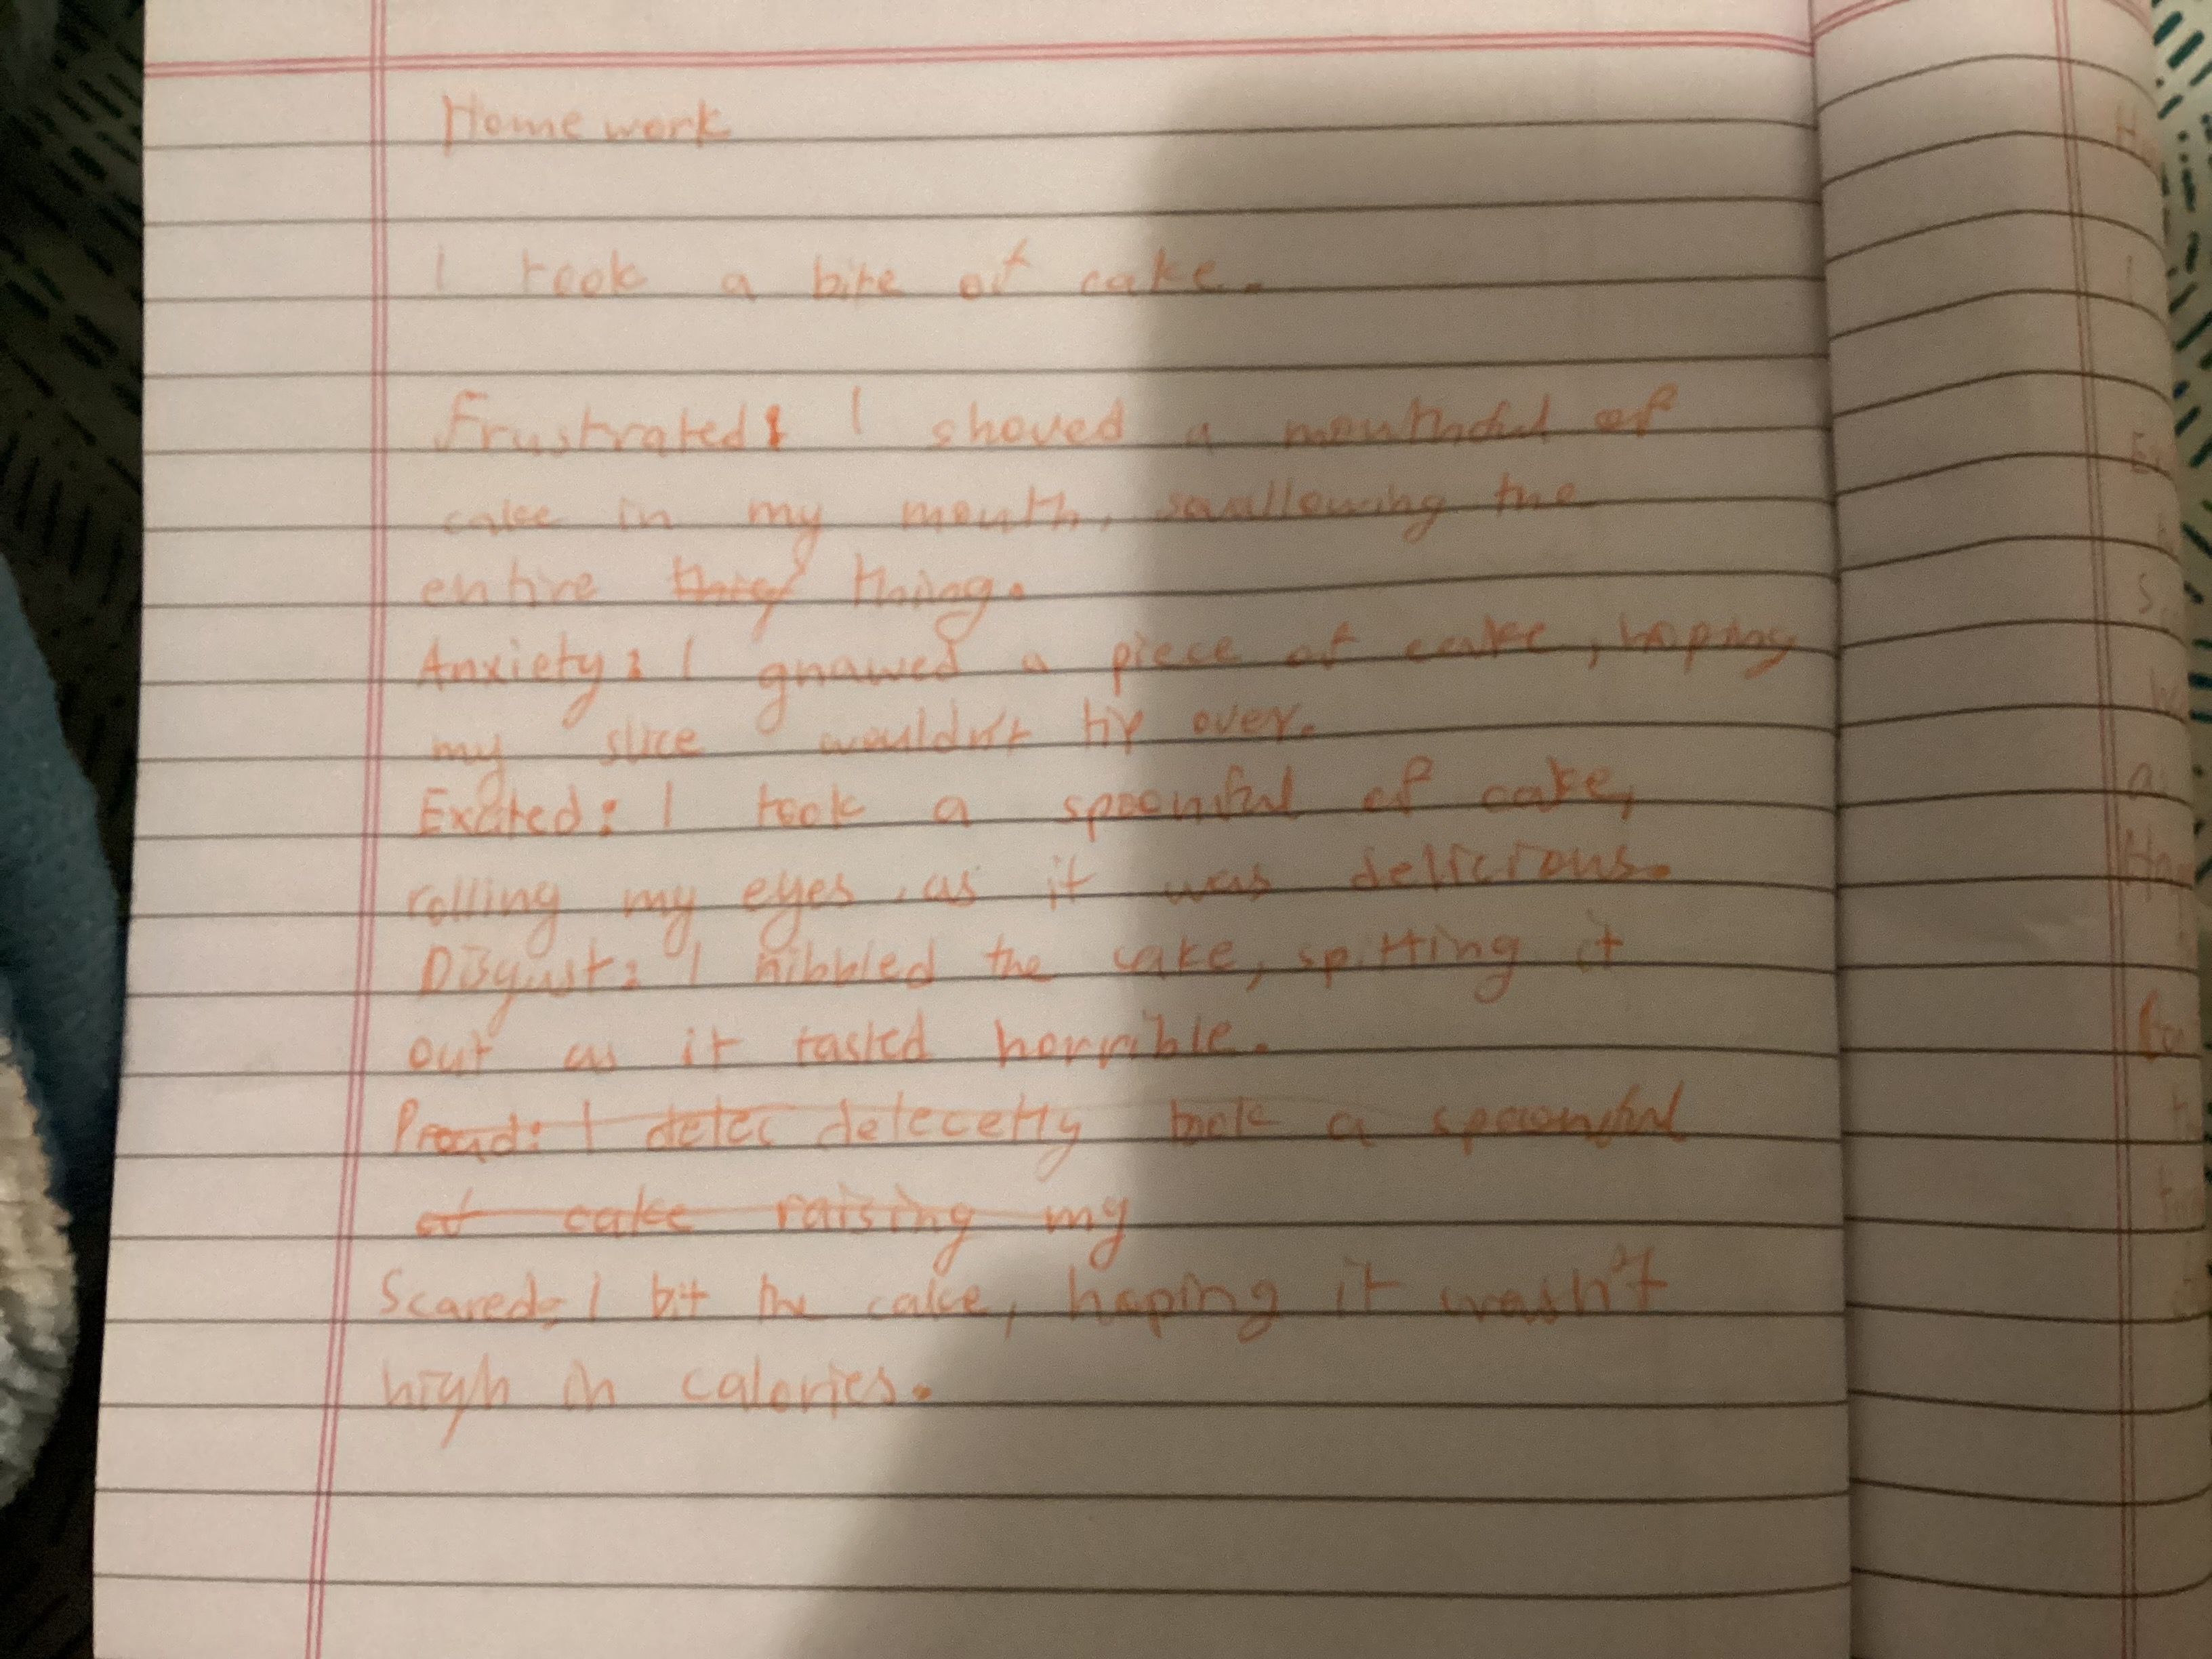 Homework
I took a bite of cake.
Frustrated: I shoved a mouthful of
cake in my mouth, swallowing the
entire thing.
Anxiety: I gnawed a piece of cake, hoping
my slice wouldn't tip over.
Excited: I took a spoonful of cake,
rolling my eyes, as it was delicious.
Disgust: I nibbled the cake, spitting it
out as it tasted horrible.
Proud: I delec delecetly took a spoonful
of cake raising my
Scared: I bit the cake, hoping it wasn't
high in calories.